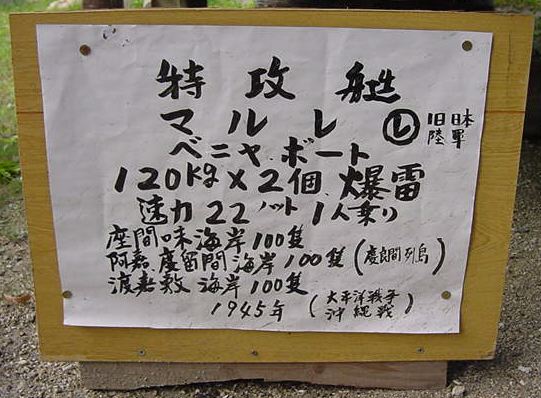 特攻艇
マルレ Ⓛ 旧日本陸軍
ベニヤボート
120kg×2個 爆雷
速力22ノット 1人乗り
座間味海岸100隻
阿嘉慶留間海岸100隻(慶良間列島)
渡嘉敷海岸100隻
1945年(太平洋戦争 沖縄戦)